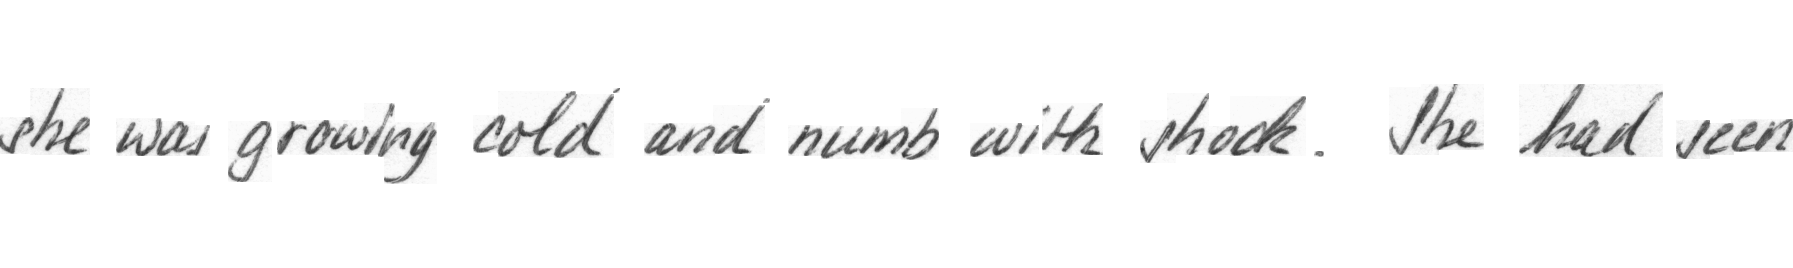 she was growing cold and numb with shock. She had seen